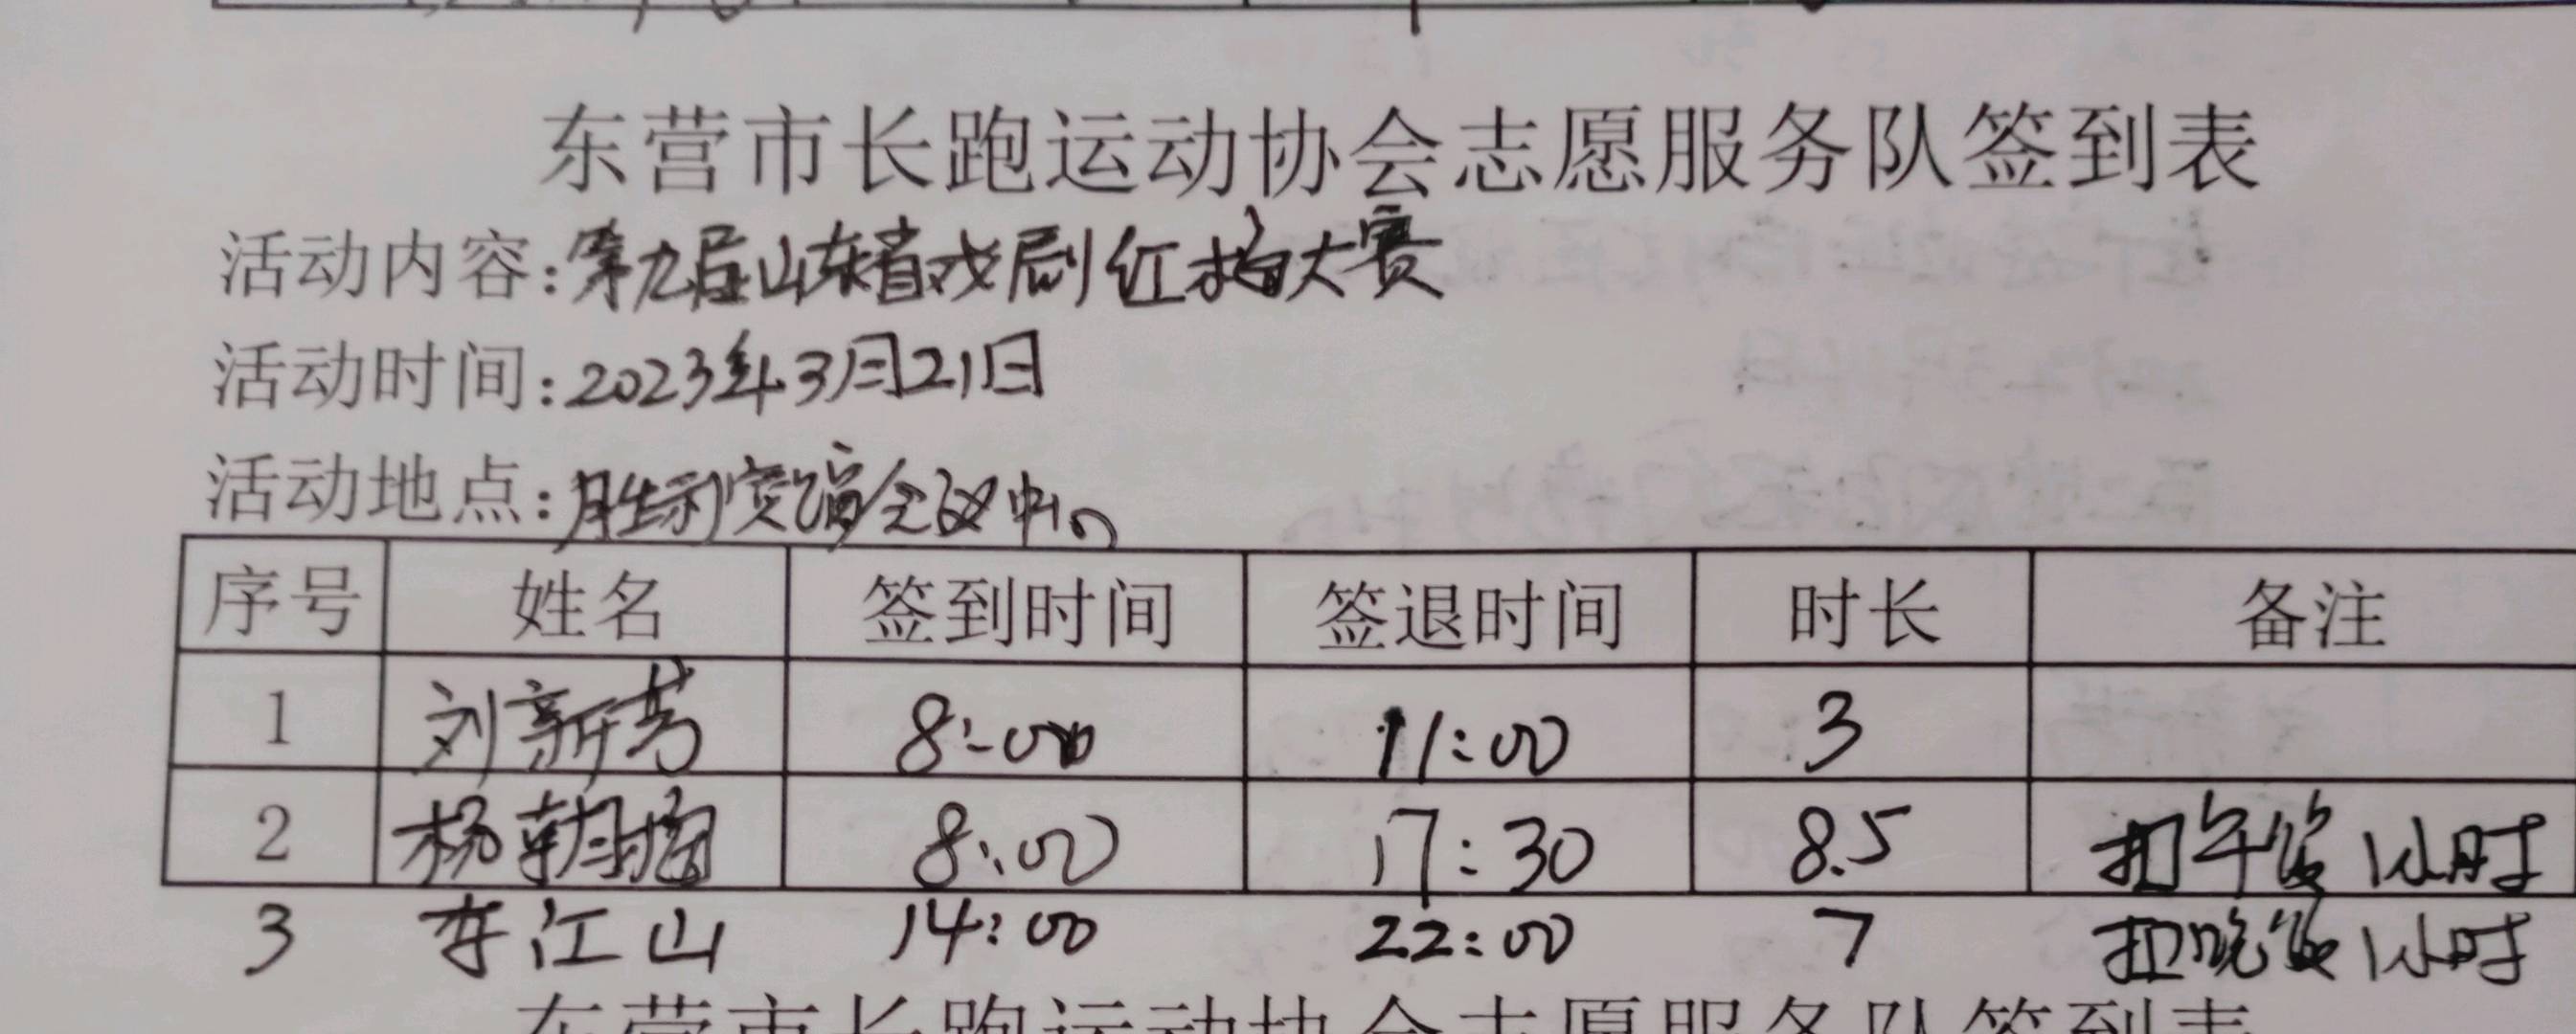 东营市长跑运动协会志愿服务队签到表
活动内容:第九届山东省戏剧红梅大赛
活动时间:2023年3月21日
活动地点:胜利宾馆会议中心
序号 姓名 签到时间 签退时间 时长 备注
1 刘新芳 8:00 11:00 3
2 杨朝 8:00 17:30 8.5 扣午饭1小时
3 李江山 14:00 22:00 7 扣晚饭1小时
东营市长跑运动协会志愿服务队签到表